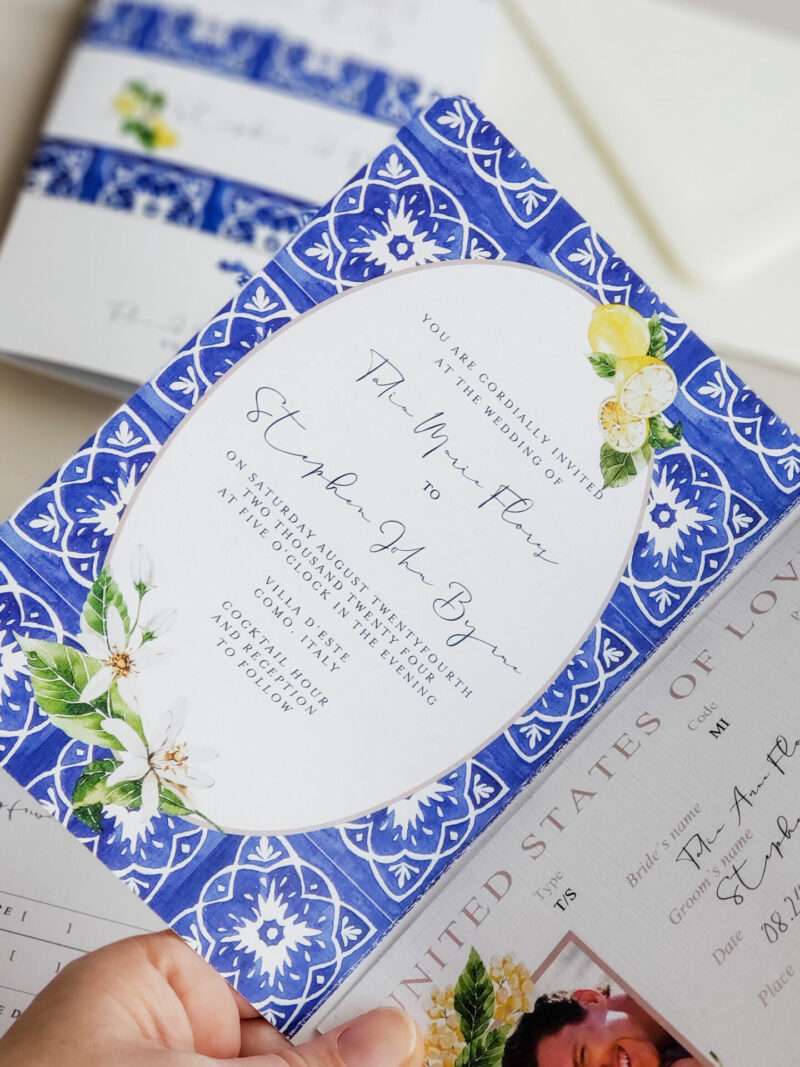 YOU ARE CORDIALLY INVITED
AT THE WEDDING OF
Talia Marie Flores
TO
Stephen John Byrne
ON SATURDAY AUGUST TWENTYFOURTH
TWO THOUSAND TWENTY FOUR
AT FIVE O'CLOCK IN THE EVENING
VILLA D'ESTE
COMO, ITALY
COCKTAIL HOUR
AND RECEPTION
TO FOLLOW
UNITED STATES OF LOV
Type
T/S
Code
MI
Bride's name
Talia Ann Flor
Groom's name
Steph
Date
08.2
Place